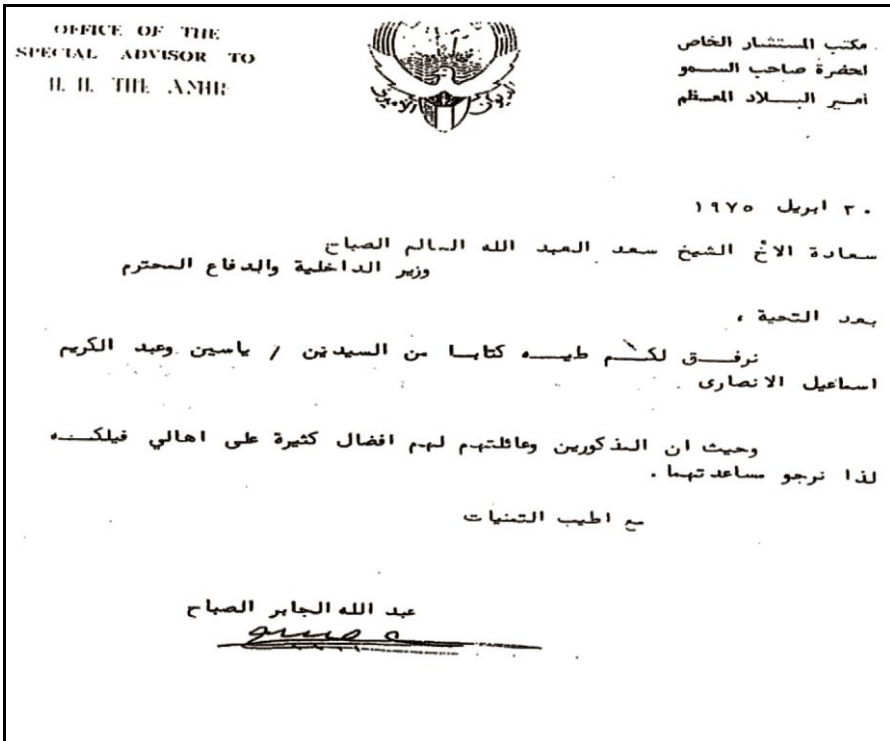 OFFICE OF THE
SPECIAL ADVISOR TO
H. H. THE AMIR
الديوان الأميري
مكتب المستشار الخاص
لحضرة صاحب السمو
أمير البلاد المعظم
٢٠ ابريل ١٩٧٥
سعادة الاخ الشيخ سعد العبد الله السالم الصباح
وزير الداخلية والدفاع المحترم
بعد التحية ،
نرفق لكم طيه كتابا من السيدين / ياسين وعبد الكريم
اسماعيل الانصارى .
وحيث ان المذكورين وعائلتهم لهم افضال كثيرة على اهالي فيلكه
لذا نرجو مساعدتهما .
مع اطيب التمنيات
عبد الله الجابر الصباح